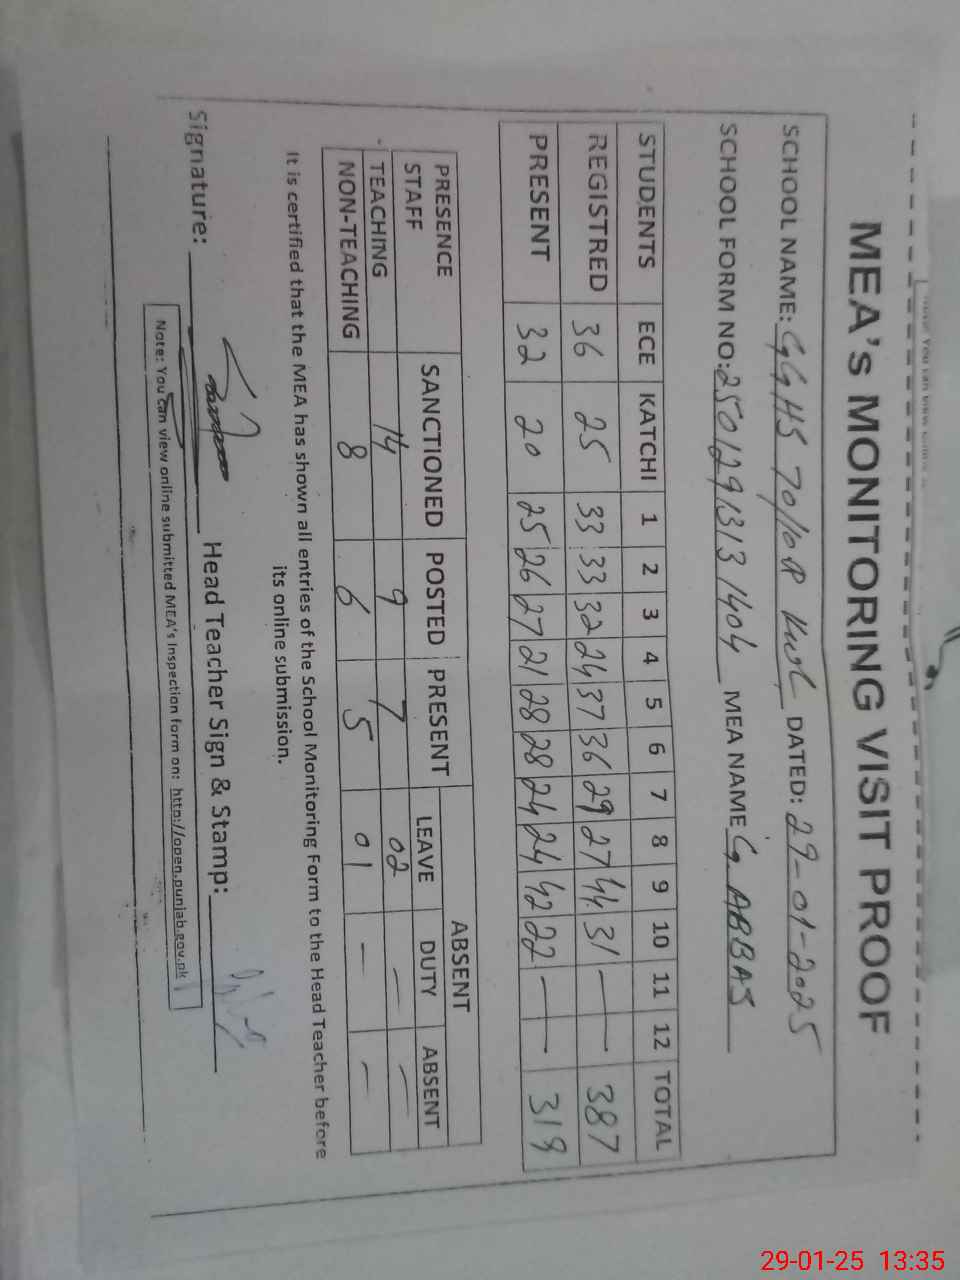 MEA's MONITORING VISIT PROOF
SCHOOL NAME: GGHS 70/10R KWL DATED: 29-01-2025
SCHOOL FORM NO: 2501291313 1404 MEA NAME G ABBAS
STUDENTS ECE KATCHI 1 2 3 4 5 6 7 8 9 10 11 12 TOTAL
REGISTRED 36 25 33 33 32 24 37 36 29 27 44 31 — — 387
PRESENT 32 20 25 26 27 21 28 28 24 24 42 22 — — 319
PRESENCE STAFF SANCTIONED POSTED PRESENT ABSENT
LEAVE DUTY ABSENT
TEACHING 14 9 7 02 — —
NON-TEACHING 8 6 5 01 — —
It is certified that the MEA has shown all entries of the School Monitoring Form to the Head Teacher before
its online submission.
Signature: Head Teacher Sign & Stamp:
Note: You can view online submitted MEA's Inspection form on: http://open.punjab.gov.pk
29-01-25 13:35